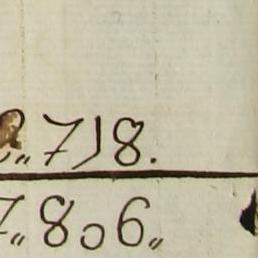 „ 718.
7„ 806„